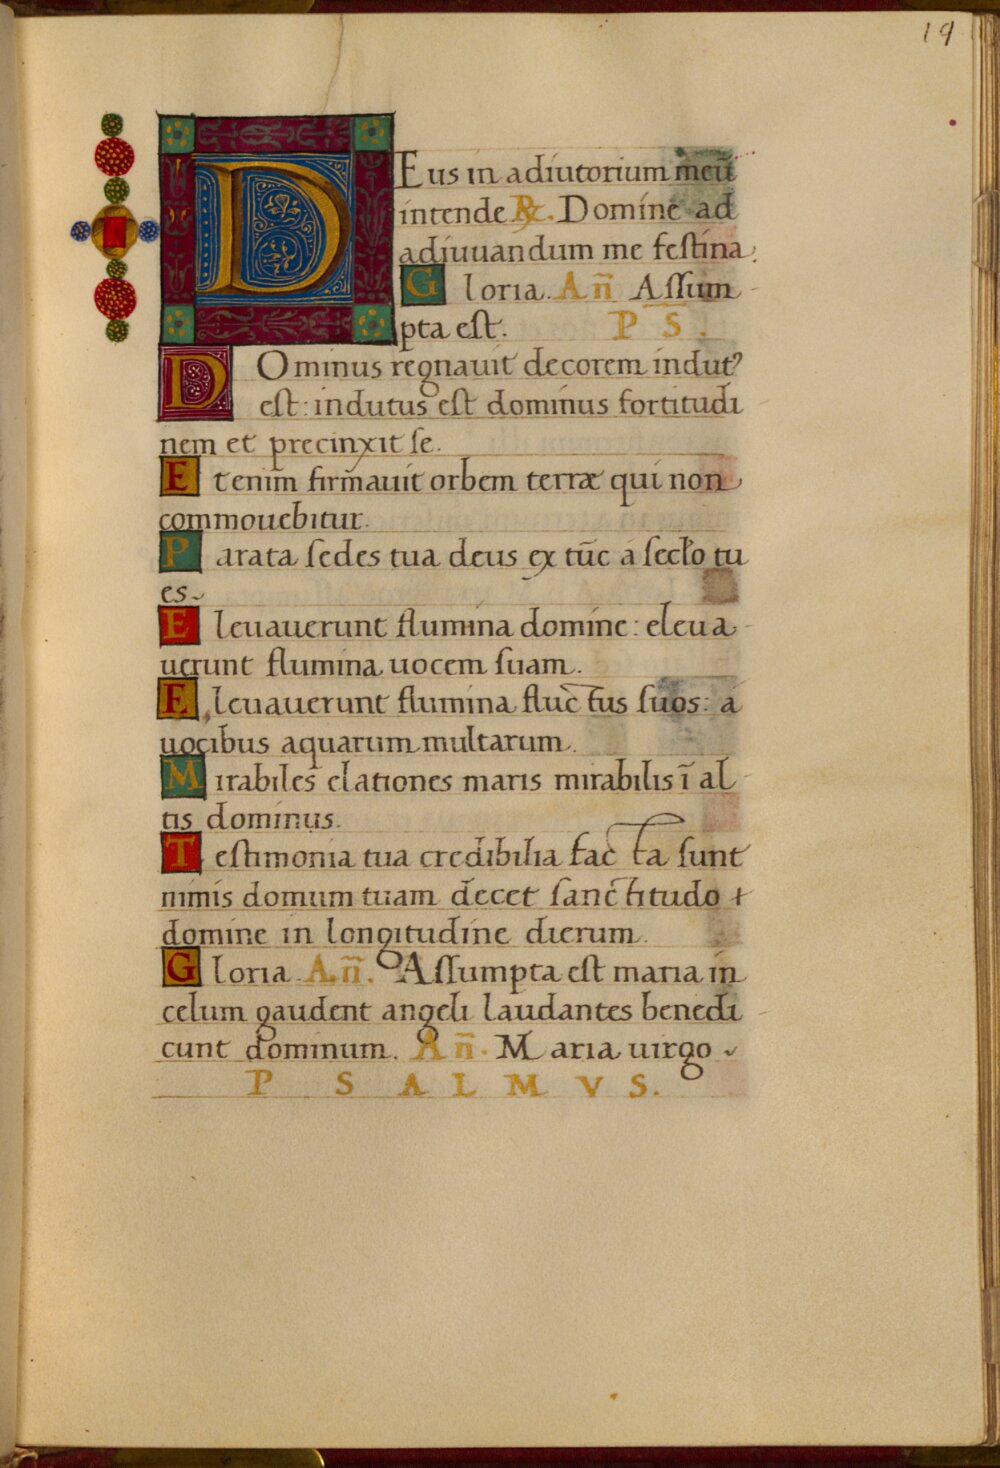 19
DEus in adiutorium meū
intende ℟. Domine ad
adiuuandum me festina.
Gloria. Añ Assum
pta est. PS.
DOminus regnauit decorem indutꝰ
est: indutus est dominus fortitudi
nem et precinxit se.
Etenim firmauit orbem terræ qui non
commouebitur.
Parata sedes tua deus ex tūc a seclo tu
es.
Eleuauerunt flumina domine: eleua
uerunt flumina uocem suam.
Eleuauerunt flumina fluctus suos: a
uocibus aquarum multarum.
Mirabiles elationes maris mirabilis ī al
tis dominus.
Testimonia tua credibilia facta sunt
nimis domum tuam decet sanctitudo
domine in longitudine dierum.
Gloria. Añ. Assumpta est maria in
celum gaudent angeli laudantes benedi
cunt dominum. Añ. Maria uirgo
PSALMVS.